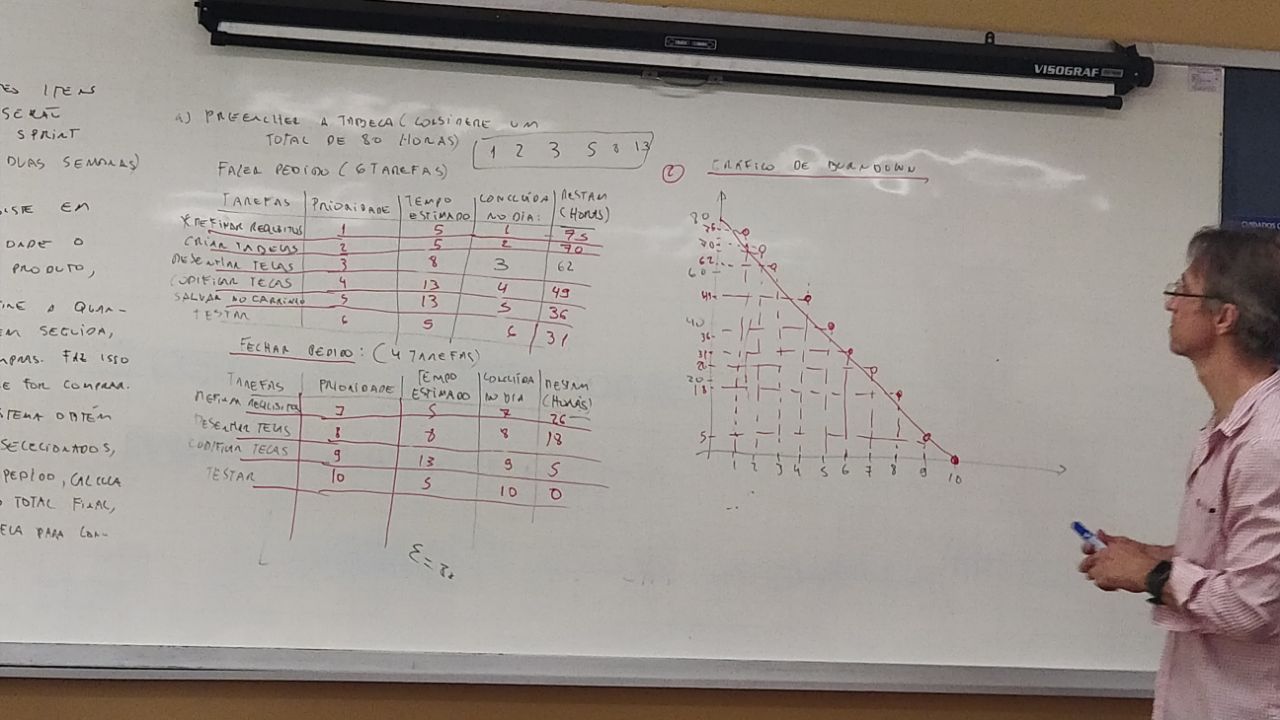 VISOGRAF
ES ITENS
SERÃO
SPRINT
DUAS SEMANAS)
ISTE EM
DADE O
PRODUTO,
A QUAN-
EM SEGUIDA,
FAZ ISSO
E FOR COMPRAR.
OBTÉM
SELECIONADOS,
PEDIDO, CALCULA
O TOTAL FINAL,
ELA PARA CON-
a) PREENCHER A TABELA (CONSIDERE UM
TOTAL DE 80 HORAS)
1 2 3 5 8 13
FAZER PEDIDO (6 TAREFAS)
TAREFAS PRIORIDADE TEMPO ESTIMADO CONCLUÍDA NO DIA: RESTAM (HORAS)
REFINAR REQUISITOS 1 5 1 75
CRIAR TABELAS 2 5 2 70
DESENHAR TELAS 3 8 3 62
CODIFICAR TELAS 4 13 4 49
SALVAR NO CARRINHO 5 13 5 36
TESTAR 6 5 6 31
FECHAR PEDIDO: (4 TAREFAS)
TAREFAS PRIORIDADE TEMPO ESTIMADO CONCLUÍDA NO DIA RESTAM (HORAS)
REFINAR REQUISITOS 7 5 7 26
DESENHAR TELAS 8 8 8 18
CODIFICAR TELAS 9 13 9 5
TESTAR 10 5 10 0
2 GRÁFICO DE BURNDOWN
80
75
70
62
60
49
40
36
31
20
18
5
1 2 3 4 5 6 7 8 9 10